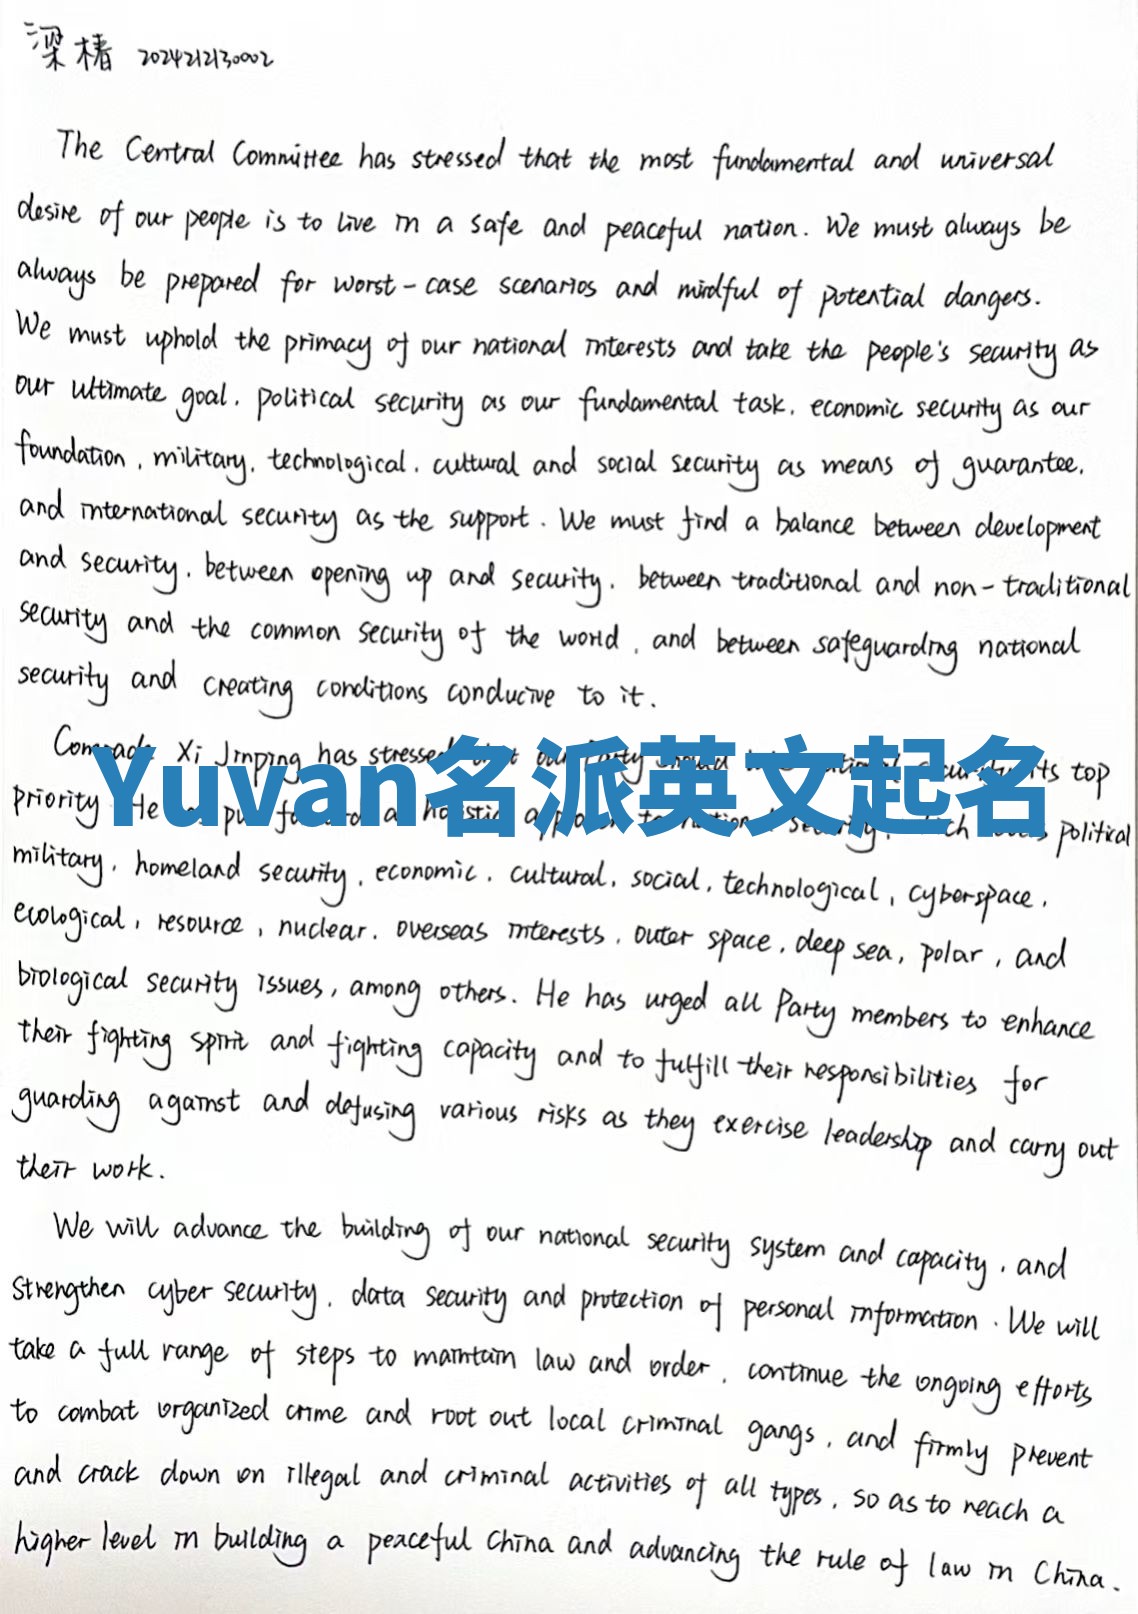 梁椿 2024212130002
The Central Committee has stressed that the most fundamental and universal
desire of our people is to live in a safe and peaceful nation. We must always be
always be prepared for worst-case scenarios and mindful of potential dangers.
We must uphold the primacy of our national interests and take the people's security as
our ultimate goal, political security as our fundamental task, economic security as our
foundation, military, technological, cultural and social security as means of guarantee,
and international security as the support. We must find a balance between development
and security, between opening up and security, between traditional and non-traditional
security and the common security of the world, and between safeguarding national
security and creating conditions conducive to it.
Comrade Xi Jinping has stressed that our Party should its top
Yuvan名派英文起名
priority He put forward a holistic approach to national security, which political
military, homeland security, economic, cultural, social, technological, cyberspace,
ecological, resource, nuclear, overseas interests, outer space, deep sea, polar, and
biological security issues, among others. He has urged all Party members to enhance
their fighting spirit and fighting capacity and to fulfill their responsibilities for
guarding against and defusing various risks as they exercise leadership and carry out
their work.
We will advance the building of our national security system and capacity, and
strengthen cyber security, data security and protection of personal information. We will
take a full range of steps to maintain law and order, continue the ongoing efforts
to combat organized crime and root out local criminal gangs, and firmly prevent
and crack down on illegal and criminal activities of all types, so as to reach a
higher level in building a peaceful China and advancing the rule of law in China.